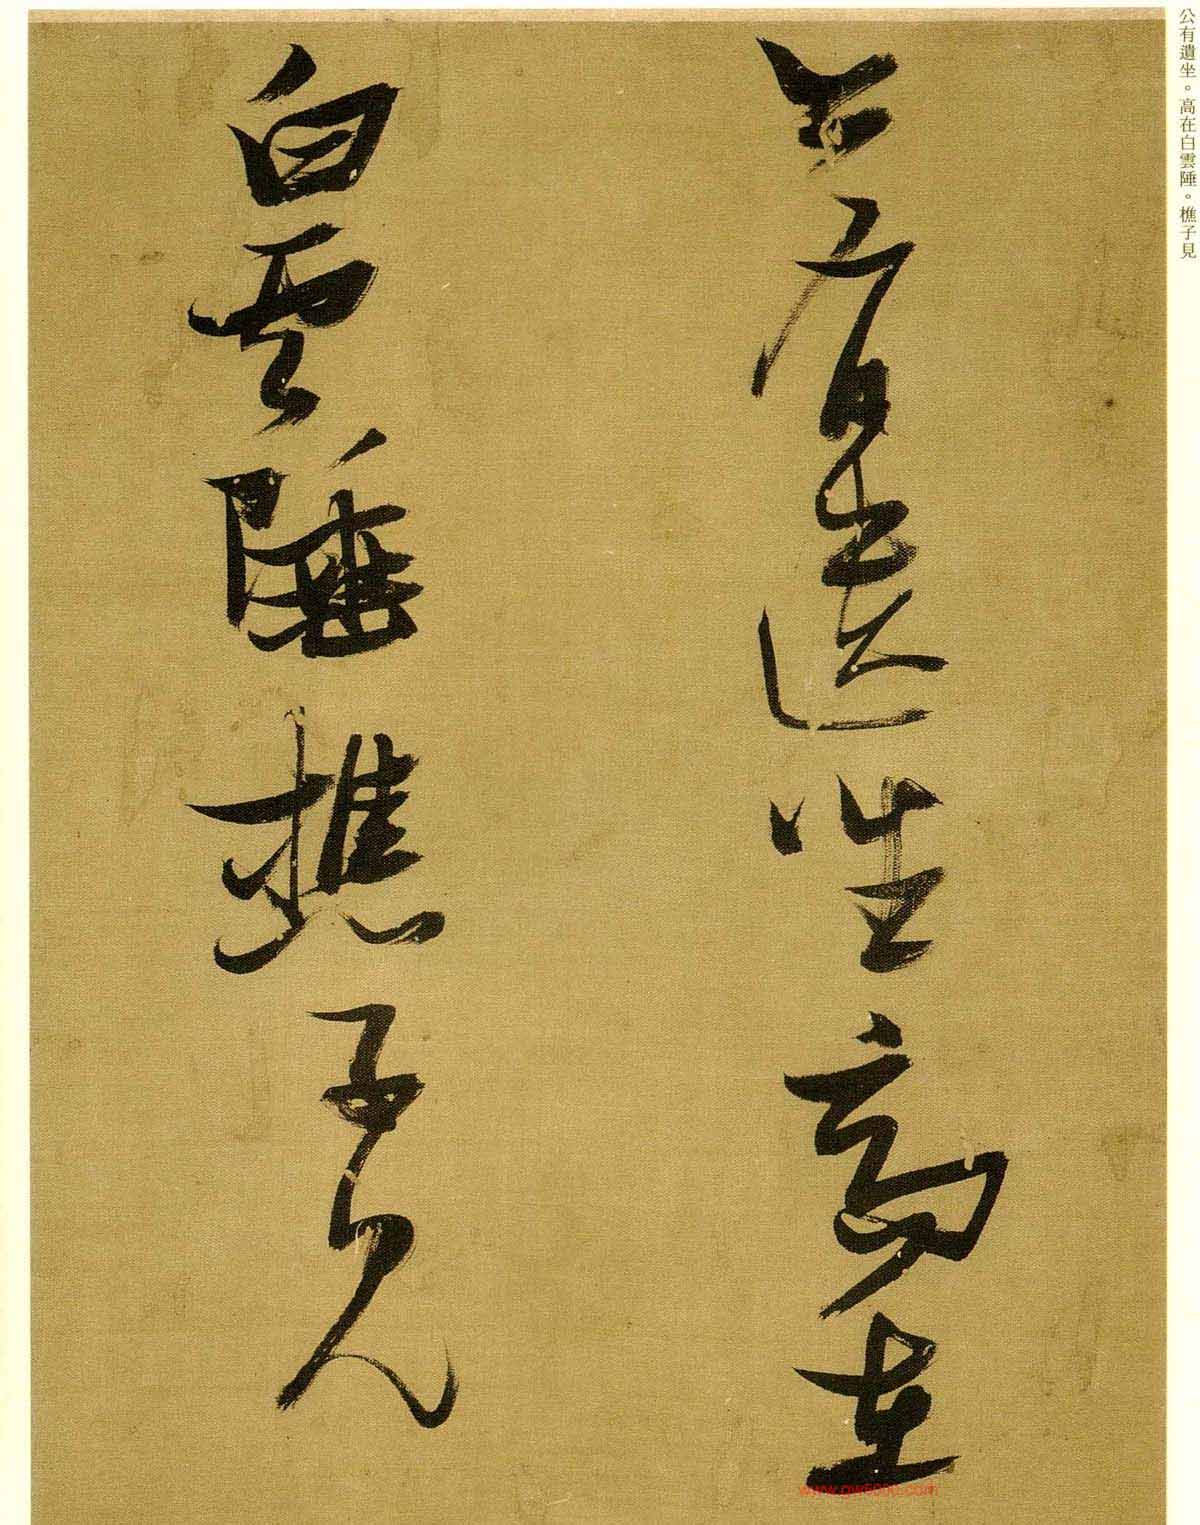 公有遺坐。高在白雲陲。樵子見
公有遺坐高在
白雲陲樵子見